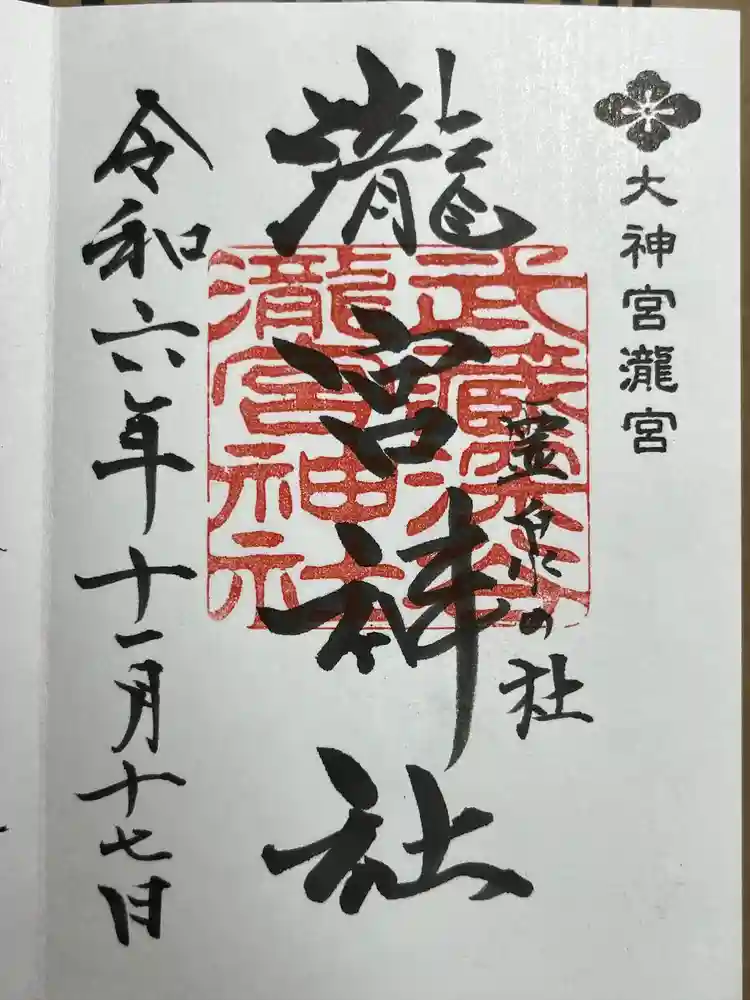 大神宮瀧宮
霊泉の社
瀧宮神社
武蔵深谷
瀧宮神社
令和六年十一月十七日